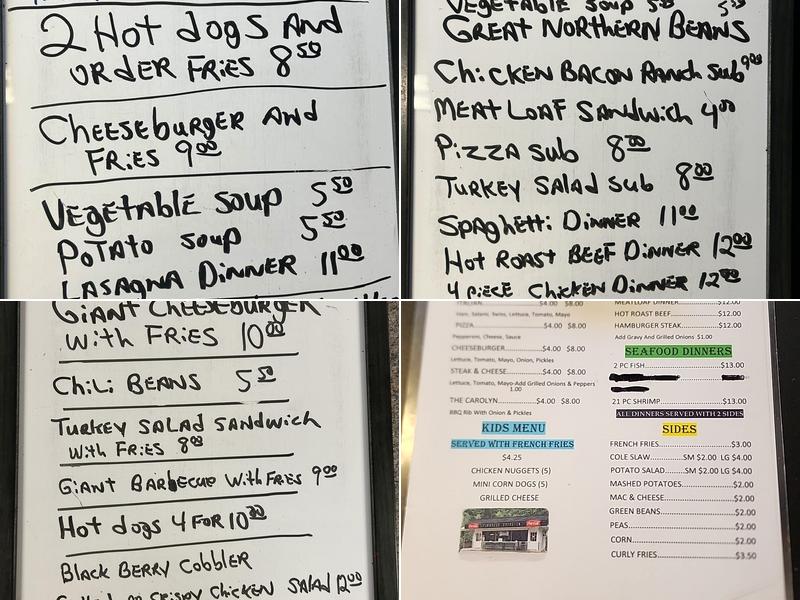 2 Hot dogs And
ORdER FRiES 8 50
CHEESEbURGER ANd
FRiES 9 00
VEgETAblE SOUP 5 50
POTATO SOUP 5 50
LASAGNA DiNNER 11 00
VEGETAblE SOUP 5 50
GREAT NORTHERN BEANS
CHiCKEN BACON RANCH SUb 9 00
MEAT LOAF SANdwich 4 00
PiZZA SUb 8 00
TURKEY SALAd SUb 8 00
SpAgHETTi DiNNER 11 00
HoT ROAST BEEF DiNNER 12 00
4 PiECE CHiCKEN DiNNER 12 00
GiANT CHEESEbURGER
WiTH FRiES 10 00
CHiLi BEANS 5 50
TURKEY SALAd SANdwiCH
WiTH FRiES 8 00
GiANT BARbECUE WiTH FRiES 9 00
HoT dogs 4 FOR 10 00
BLACK BERRY CobblER
CRiSPY CHiCKEN SALAd 12 00
$4.00 $8.00
Ham, Salami, Swiss, Lettuce, Tomato, Mayo
PIZZA......$4.00 $8.00
Pepperoni, Cheese, Sauce
CHEESEBURGER......$4.00 $8.00
Lettuce, Tomato, Mayo, Onion, Pickles
STEAK & CHEESE......$4.00 $8.00
Lettuce, Tomato, Mayo-Add Grilled Onions & Peppers
1.00
THE CAROLYN......$4.00 $8.00
BBQ Rib With Onion & Pickles
KIDS MENU
SERVED WITH FRENCH FRIES
$4.25
CHICKEN NUGGETS (5)
MINI CORN DOGS (5)
GRILLED CHEESE
MEATLOAF DINNER......$12.00
HOT ROAST BEEF......$12.00
HAMBURGER STEAK......$12.00
Add Gravy And Grilled Onions $1.00
SEAFOOD DINNERS
2 PC FISH......$13.00
21 PC SHRIMP......$13.00
ALL DINNERS SERVED WITH 2 SIDES
SIDES
FRENCH FRIES......$3.00
COLE SLAW......SM $2.00 LG $4.00
POTATO SALAD......SM $2.00 LG $4.00
MASHED POTATOES......$2.00
MAC & CHEESE......$2.00
GREEN BEANS......$2.00
PEAS......$2.00
CORN......$2.00
CURLY FRIES......$3.50